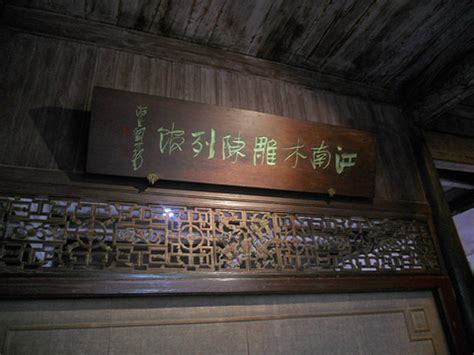 江南木雕陳列馆